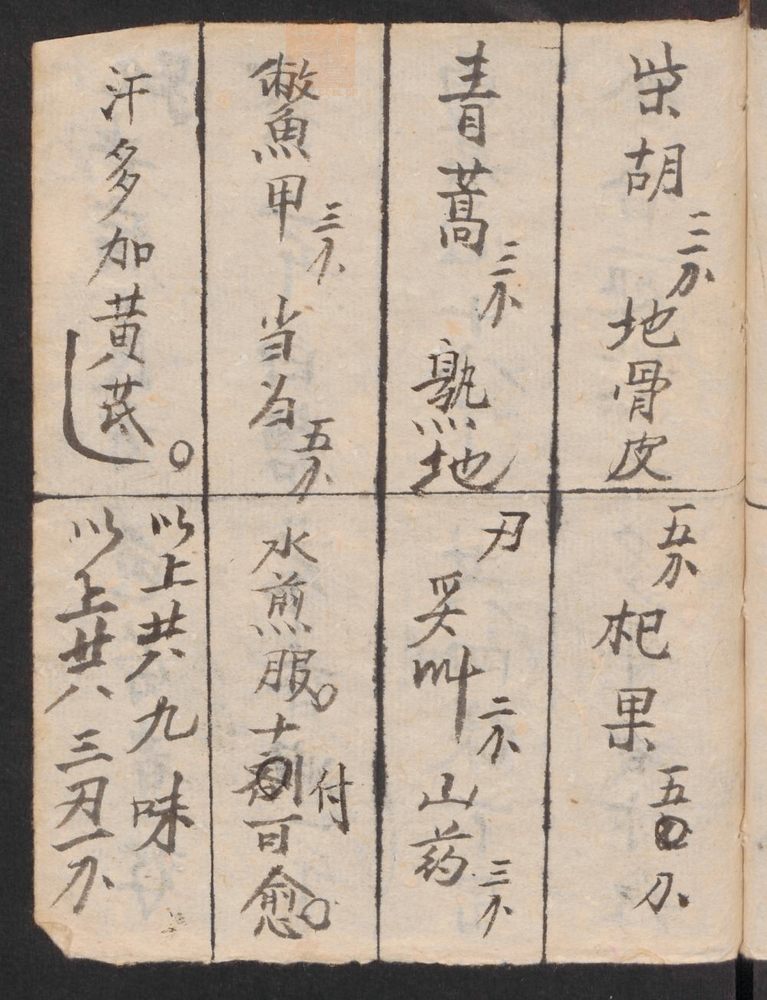 柴胡三分地骨皮五分杞果五分
青蒿三分熟地刃 叫二分山药三分
鱉甲三分当归五分水煎服。十付可愈。
汗多加黄芪。
以上共九味
以上共三刃一分